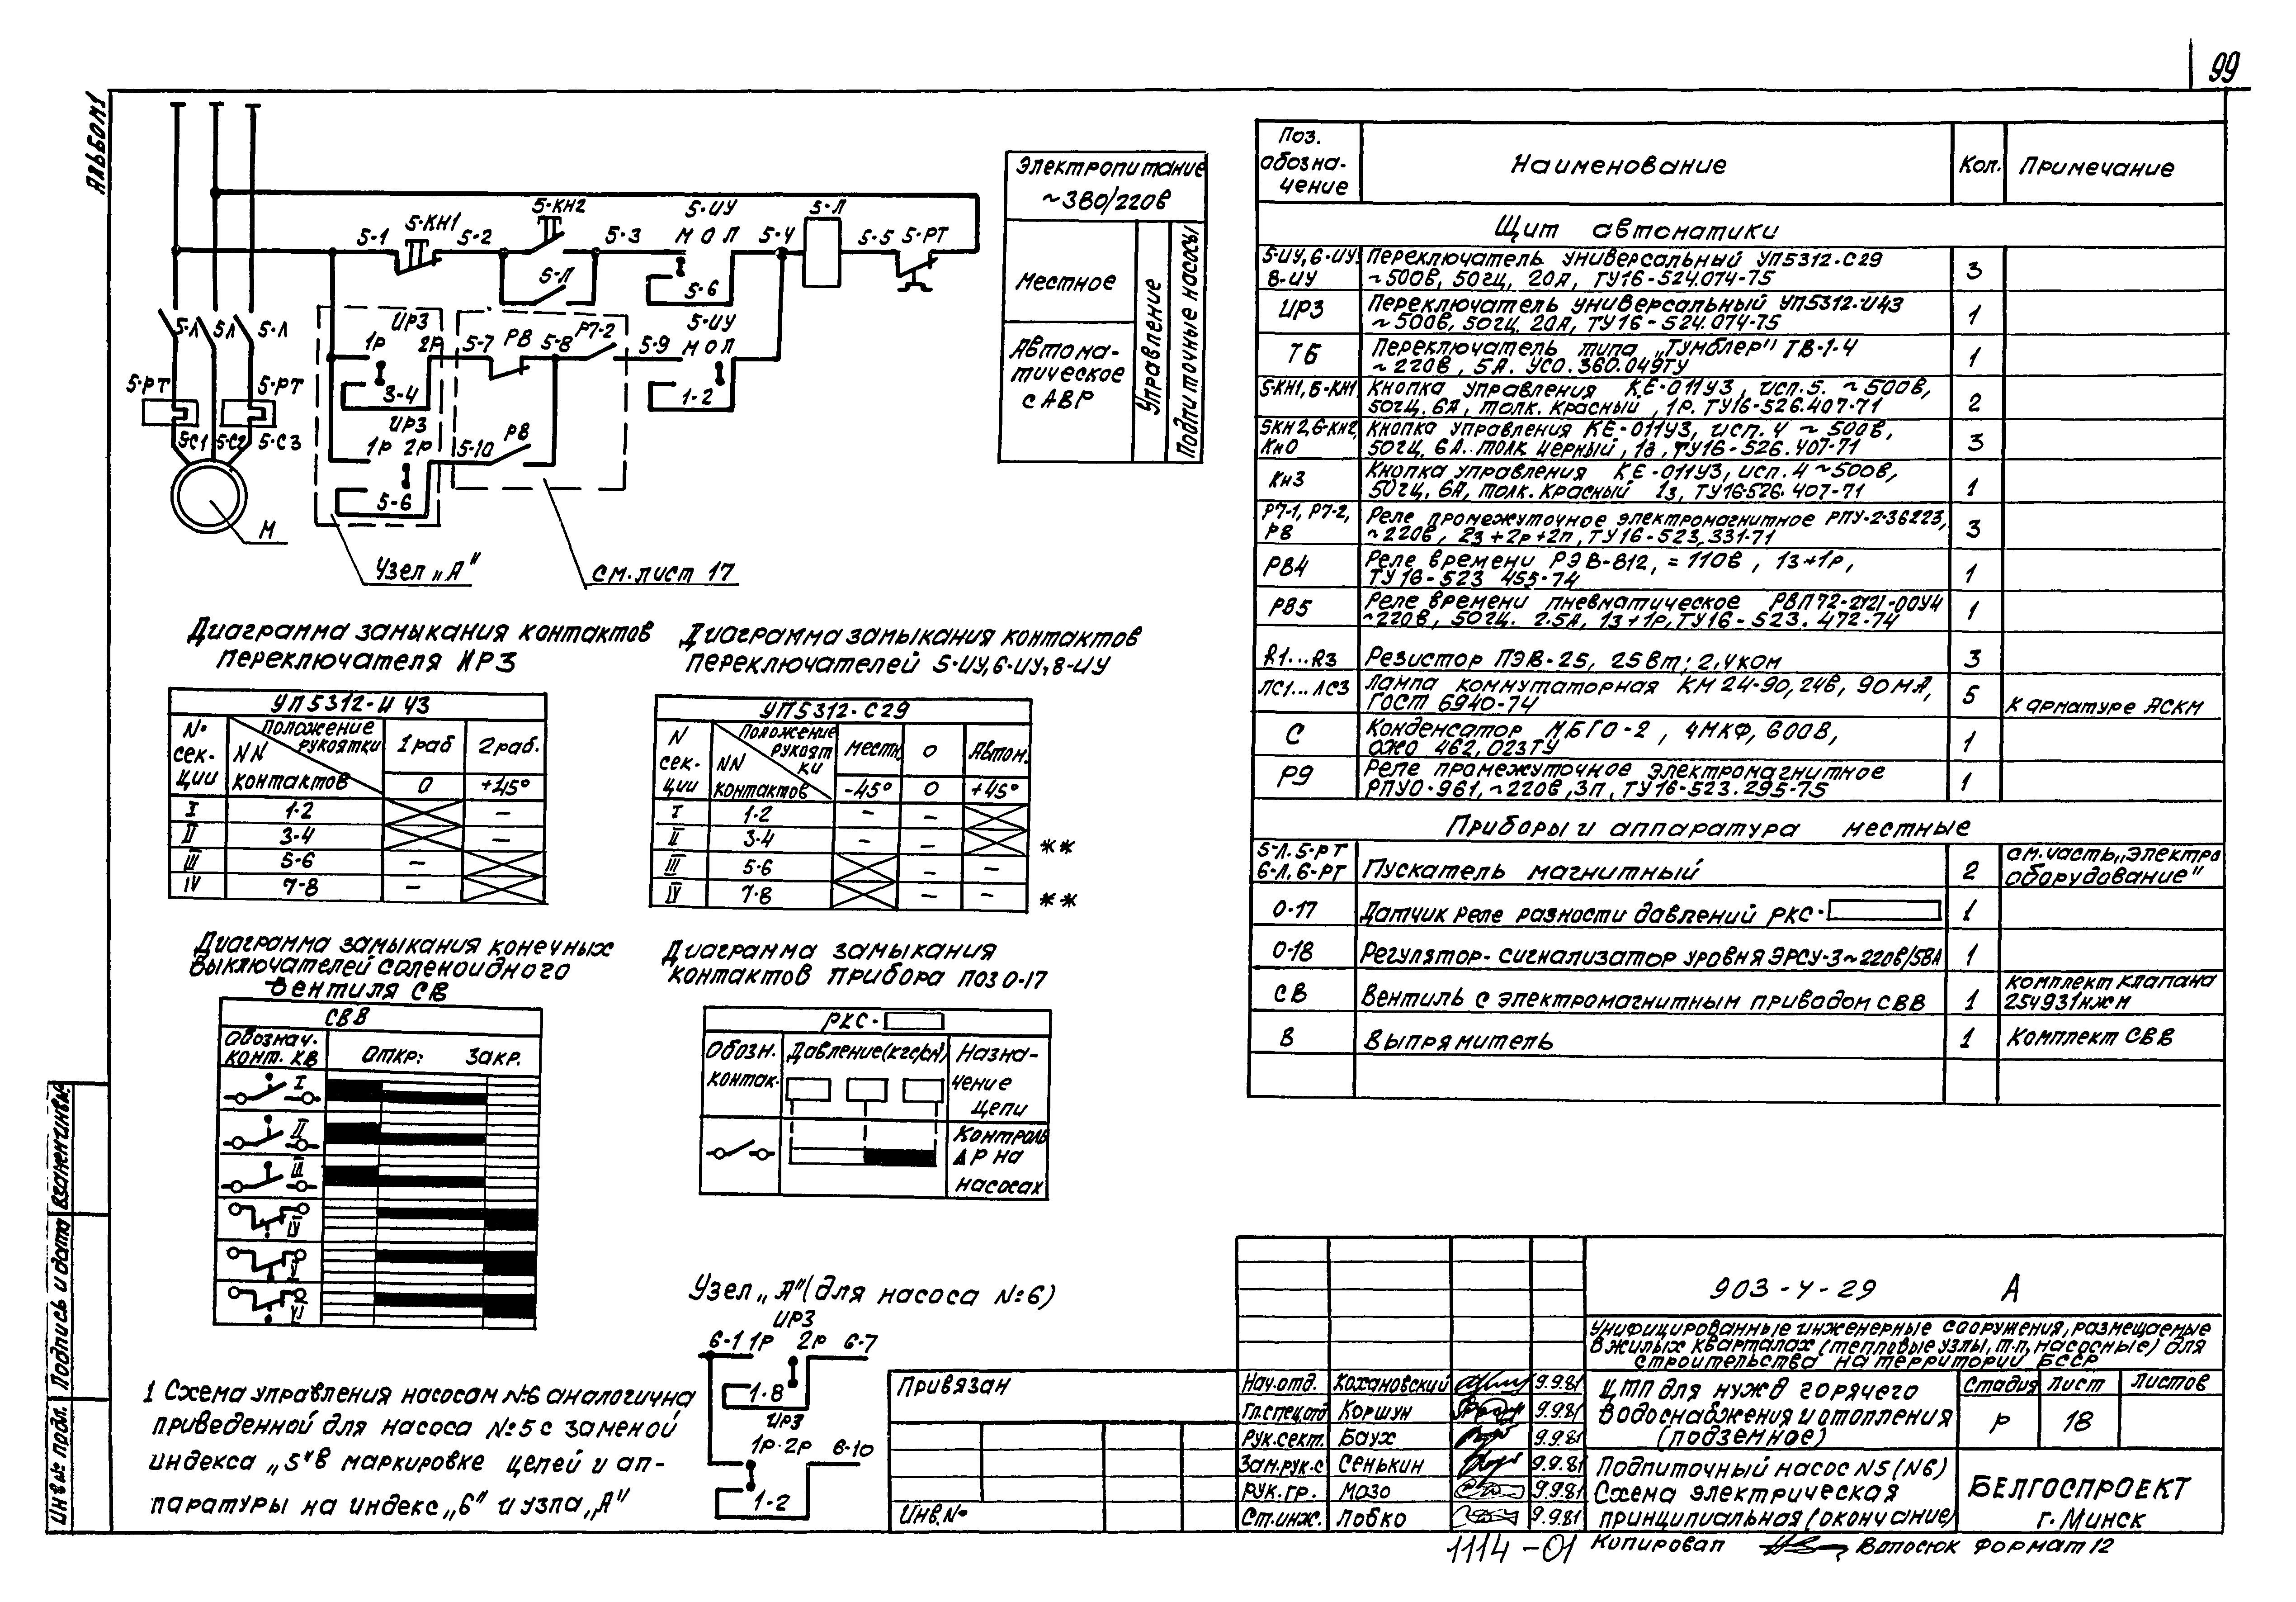 99
Альбом 1
5-1
5-КН1
5-2
5-КН2
5-3
5-ИУ
М О Л
5-4
5-Л
5-5
5-РТ
5-Л
5-6
5-Л
5-Л
5-Л
ИР3
1Р
2Р
3-4
5-7
Р8
5-8
Р7-2
5-9
5-ИУ
М О Л
1-2
5-РТ
5-РТ
5С1
5-С2
5-С3
ИР3
1Р 2Р
5-6
5-10
Р8
М
Узел „А"
см. лист 17
Электропитание
~380/220в
Местное
Автома-
тическое
с АВР
Управление
Подпиточные насосы
Диаграмма замыкания контактов
переключателя ИР3
УП5312-И43
№
сек-
ции
Положение
рукоятки
NN
контактов
1 раб
2 раб.
0
+45°
I
1-2
–
II
3-4
–
III
5-6
–
IV
7-8
–
Диаграмма замыкания контактов
переключателей 5-ИУ, 6-ИУ, 8-ИУ
УП5312-С29
N
сек-
ции
Положение
рукоят
ки
NN
контактов
местн.
0
Автом.
-45°
0
+45°
I
1-2
– –
II
3-4
– –
**
III
5-6
– –
IV
7-8
– –
**
Диаграмма замыкания конечных
выключателей соленоидного
вентиля СВ
СВВ
Обознач.
конт. КВ
Откр.
Закр.
I
II
III
IV
V
VI
Диаграмма замыкания
контактов прибора поз 0-17
РКС-
Обозн.
контак.
Давление(кгс/см²)
Назна-
чение
цепи
Контроль
ΔР на
насосах
Узел „А" (для насоса №6)
ИР3
6-1 1Р 2Р 6-7
1-8
ИР3
1Р 2Р 6-10
1-2
1 Схема управления насосом №6 аналогична
приведенной для насоса №5 с заменой
индекса „5" в маркировке цепей и ап-
паратуры на индекс „6" и узла „А"
Поз.
обозна-
чение
Наименование
Кол.
Примечание
Щит автоматики
5-ИУ, 6-ИУ,
8-ИУ
Переключатель универсальный УП5312-С29
~500в, 50гц, 20А, ТУ16-524.074-75
3
ИР3
Переключатель универсальный УП5312-И43
~500в, 50гц. 20А, ТУ16-524.074-75
1
ТБ
Переключатель типа „Тумблер" ТВ-1-4
~220в, 5А. УСО.360.049ТУ
1
5-КН1, 6-КН1
Кнопка управления КЕ-011У3, исп.5. ~500в,
50гц. 6А, толк. Красный, 1р. ТУ16-526.407-71
2
5КН2, 6-КН2,
КнО
Кнопка управления КЕ-011У3, исп. 4 ~500в,
50гц. 6А. толк черный, 1з, ТУ16-526.407-71
3
Кн3
Кнопка управления КЕ-011У3, исп. 4 ~500в,
50гц, 6А, толк. Красный 1з, ТУ16-526.407-71
1
Р7-1, Р7-2,
Р8
Реле промежуточное электромагнитное РПУ-2-36223,
~220в, 2з+2р+2п, ТУ16-523,331-71
3
РВ4
Реле времени РЭВ-812, =110в, 1з+1р,
ТУ16-523 455-74
1
РВ5
Реле времени пневматическое РВП72-2121-00У4
~220в, 50гц. 2.5А, 1з+1р, ТУ16-523.472-74
1
R1...R3
Резистор ПЭВ-25, 25вт; 2,4ком
3
ЛС1...ЛС3
Лампа коммутаторная КМ24-90, 24в, 90мА,
ГОСТ 6940-74
5
К арматуре АСКМ
С
Конденсатор МБГО-2, 4мкф, 600В,
ОЖО 462,023ТУ
1
Р9
Реле промежуточное электромагнитное
РПУ0-961, ~220в, 3п, ТУ16-523.295-75
1
Приборы и аппаратура местные
5-Л. 5-РТ
6-Л, 6-РТ
Пускатель магнитный
2
см. часть „Электро
оборудование"
0-17
Датчик реле разности давлений РКС-
1
0-18
Регулятор-сигнализатор уровня ЭРСУ-3 ~220в/5ВА
1
СВ
Вентиль с электромагнитным приводом СВВ
1
Комплект клапана
25ч931нжм
В
Выпрямитель
1
Комплект СВВ
903-4-29 А
Унифицированные инженерные сооружения, размещаемые
в жилых кварталах (тепловые узлы, т.п, насосные) для
строительства на территории БССР
Нач.отд. Кохановский 9.9.81
Гл.спец.отд Коршун 9.9.81
Рук.сект. Баух 9.9.81
Зам.рук.с Сенькин 9.9.81
Рук.гр. Мазо 9.9.81
Ст.инж. Лобко 9.9.81
ЦТП для нужд горячего
водоснабжения и отопления
(подземное)
Стадия
Лист
Листов
Р
18
Подпиточный насос N5 (N6)
Схема электрическая
принципиальная (окончание)
БЕЛГОСПРОЕКТ
г. Минск
Привязан
Инв.№
1114-01
Копировал
Формат 12
Взам.инв.№
Подпись и дата
Инв № подл.